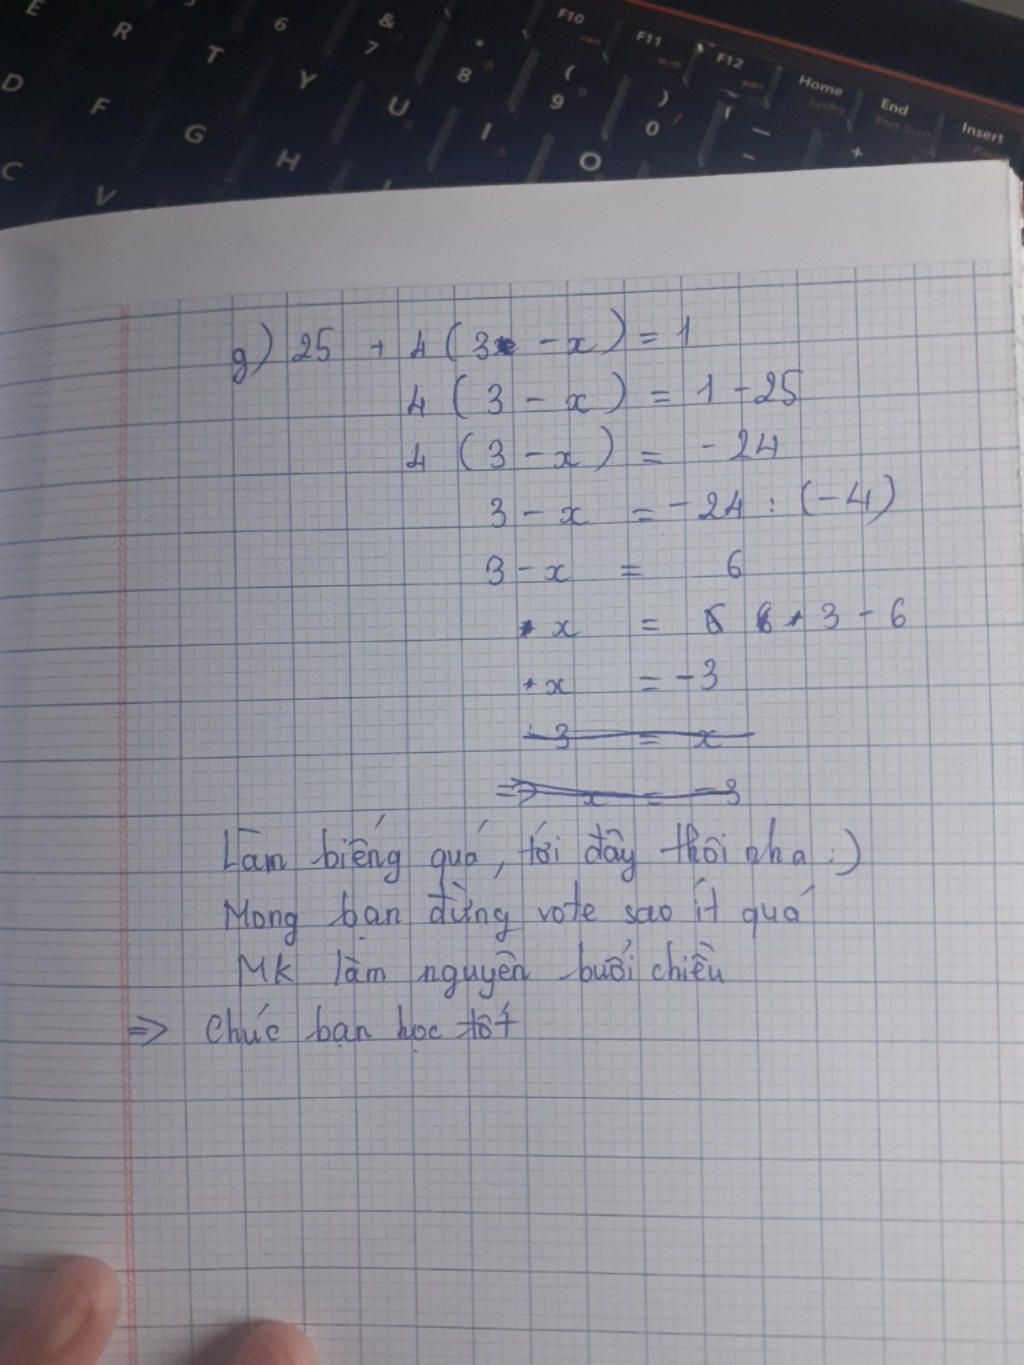 E R T 6 & 7 Y * 8 ( 9 F10 F11 F12 ) 0 Home End Insert
D F G H U I O _ - +
C V
g) 25 + 4 (3 - x) = 1
4 (3 - x) = 1 - 25
4 (3 - x) = - 24
3 - x = - 24 : (-4)
3 - x = 6
x = 3 - 6
x = - 3
3 = x
=> x = -3
Làm biếng quá, tới đây thôi nha :)
Mong bạn đừng vote sao ít quá
Mk làm nguyên buổi chiều
=> Chúc bạn học tốt